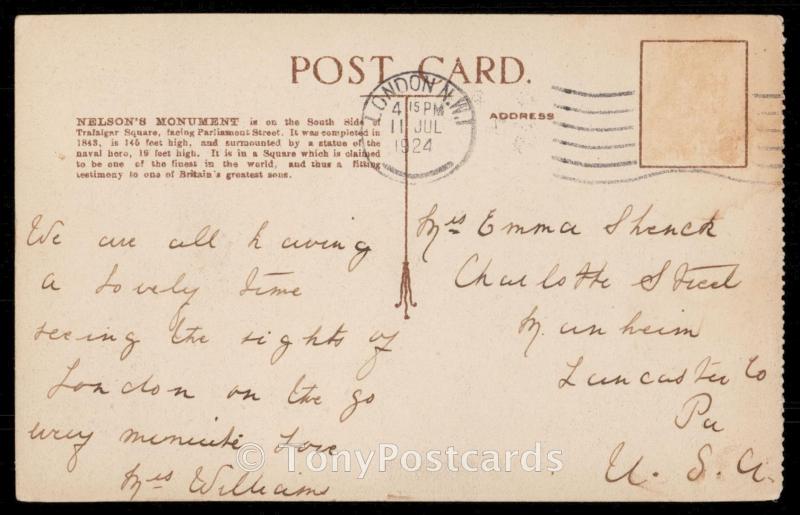 POST CARD.
NELSON'S MONUMENT is on the South Side
Trafalgar Square, facing Parliament Street. It was completed in
1843, is 145 feet high, and surmounted by a statue of the
naval hero, 19 feet high. It is in a Square which is claimed
to be one of the finest in the world, and thus a fitting
testimony to one of Britain's greatest sons.
LONDON N.W.1
4 15 PM
11 JUL
1924
ADDRESS
We are all having
a lovely time
seeing the sights of
London on the go
every minute Love
Mrs William
Mrs Emma Shenck
Charlotte Street
Manheim
Lancaster Co
Pa
U. S. A.
© TonyPostcards